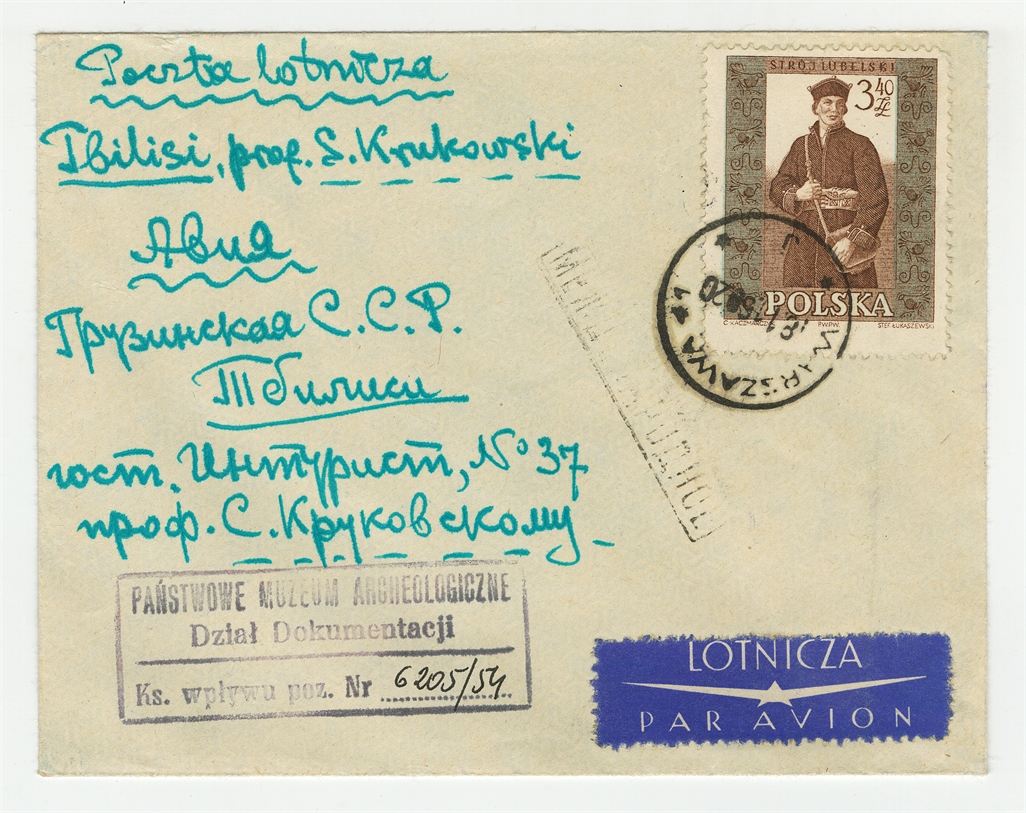 Poczta lotnicza
Tbilisi, prof. S. Krukowski
Авиа
Грузинская С.С.Р.
Тбилиси
гост. Интурист, № 37
проф. С. Круковскому
STRÓJ LUBELSKI
3 40 ZŁ
POLSKA
C. KACZMARCZYK P.W.P.W. STEF. ŁUKASZEWSKI
WARSZAWA
PAŃSTWOWE MUZEUM ARCHEOLOGICZNE
Dział Dokumentacji
Ks. wpływu poz. Nr 6205/54
LOTNICZA
PAR AVION